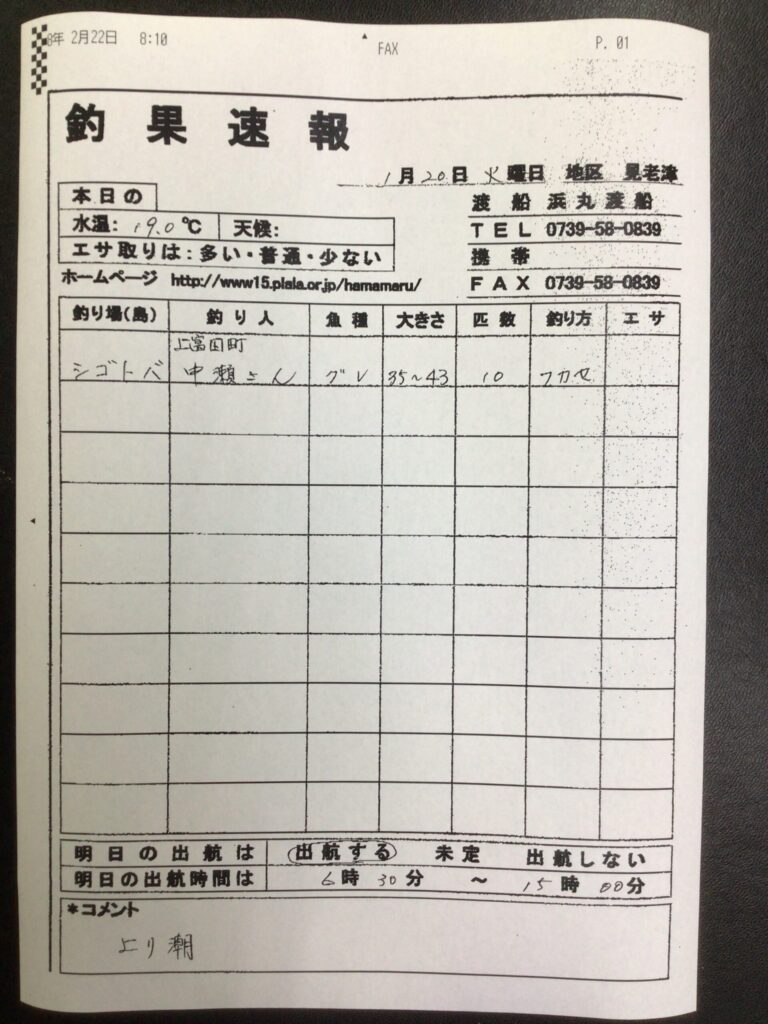 8年 2月22日 8:10 FAX P. 01
釣果速報
1月20日 火曜日 地区 見老津
本日の
水温: 19.0℃ 天候:
エサ取りは:多い・普通・少ない
ホームページ http://www15.plala.or.jp/hamamaru/
渡船 浜丸渡船
TEL 0739-58-0839
携帯
FAX 0739-58-0839
釣り場(島) 釣り人 魚種 大きさ 匹数 釣り方 エサ
上富田町
シゴトバ 中瀬さん グレ 35~43 10 フカセ
明日の出航は 出航する 未定 出航しない
明日の出航時間は 6時30分 ~ 15時00分
*コメント
上り潮